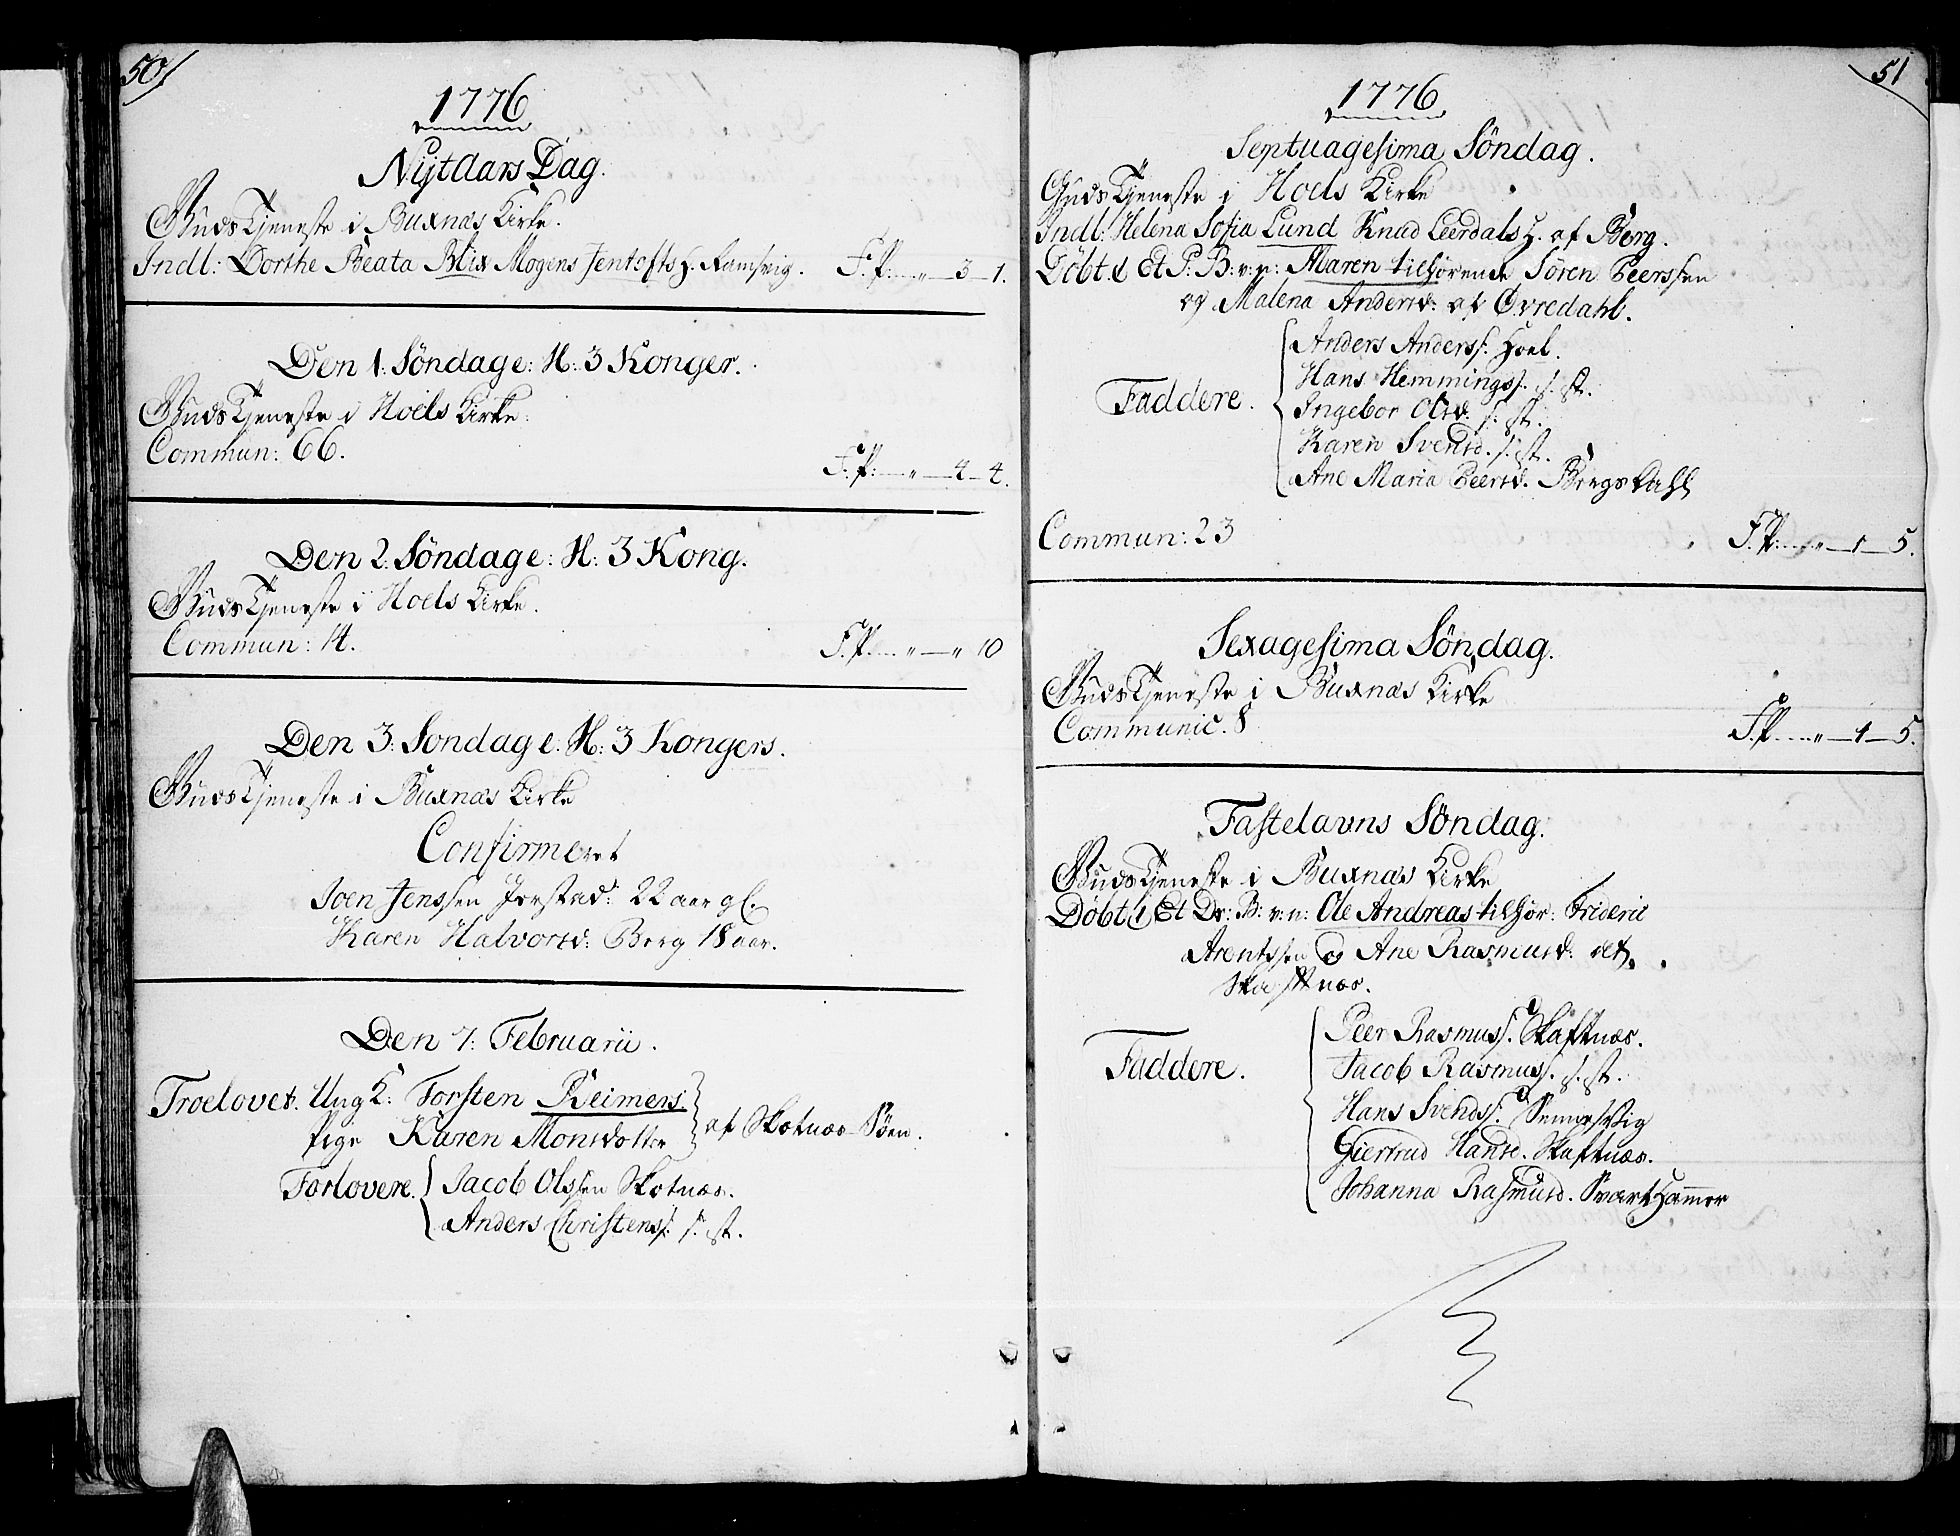 50/
1776
Nytaars Dag.
Guds Tjeneste i Buxnæs Kirke.
Indl: Dorthe Beata Blix Mogens Jentofts H. Ramsvig. F. P. " 3 1.
Den 1. Söndag e: H: 3 Konger.
Guds Tjeneste i Hoels Kirke.
Commun: 66. F. P: " 4 4.
Den 2. Söndag e: H: 3 Kong.
Guds Tjeneste i Hoels Kirke.
Commun: 14. F. P. " " 10
Den 3. Söndag e. H: 3 Kongers.
Guds Tjeneste i Buxnæs Kirke
Confirmeret
Joen Jenssen Jorstad: 22 aar gl.
Karen Halvorsd: Berg 18 aar.
Den 7: Februarii.
Troelovet. Ung K: Torsten Reimers.
Pige Karen Monsdotter af Skotnæs Söen.
Forlovere. Jacob Olssen Skotnæs.
Anders Christenss: s. st.
51
1776.
Septuagesima Söndag.
Guds Tjeneste i Hoels Kirke
Indl: Helena Sofia Lund Knud Leerdals H. af Berg.
Döbt. Et P. B: v: n: Maren tilhörende Sören Peerssen
og Malena Andersd: af Øvredahl.
Faddere.
Anders Anderss. Hoel.
Hans Hemmingss. s. st.
Ingebor Olsd. s. st.
Karen Svensd. s. st.
Ane Maria Peersd. Borgs Dahl
Commun: 23 F. P. " 1 5.
Sexagesima Söndag.
Guds Tjeneste i Buxnæs Kirke
Communic. 8 F. P. " 1 5.
Fastelavns Söndag.
Guds Tjeneste i Buxnæs Kirke
Döbt Et Dr: B: v: n: Ole Andreas tilhör: Frideric
Arentssen og Ane Rasmusd:
Skaftnæs.
Faddere.
Peer Rasmuss. Skaftnæs.
Jacob Rasmuss. s. st.
Hans Svendss.
Giertrud Hansd. Skaftnæs.
Johanna Rasmusd. Svarthammer